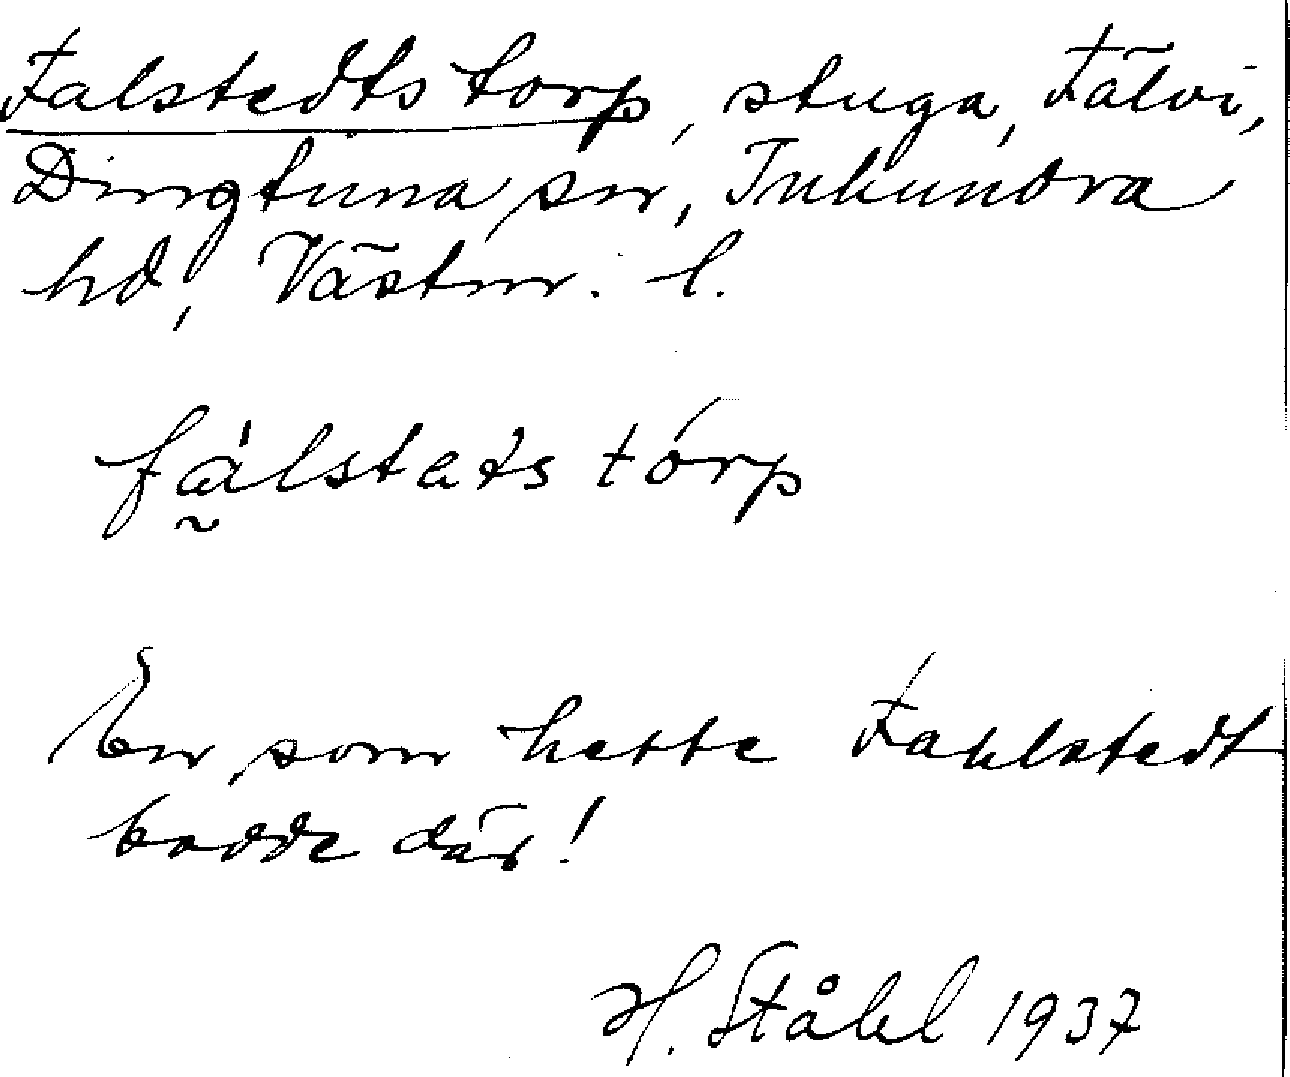 Falstedtstorp, stuga, Fälvi,
Dingtuna sn, Tuhundra
hd, Västm. l.
fálstets tórp
En som hette Fahlstedt
bodde där!
H. Ståhl 1937